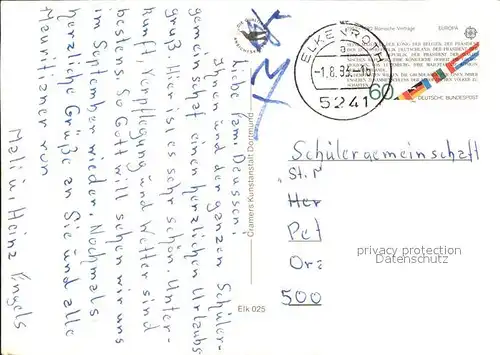 Liebe Fam. Deussen!
Ihnen und der ganzen Schüler-
gemeinschaft einen herzlichen Urlaubs
gruß. Hier ist es sehr schön. Unter-
kunft Verpflegung und Wetter sind
bestens. So Gott will sehen wir uns
im September wieder. Nochmals
herzliche Grüße an Sie und alle
von
Heinz Engels
Cramers Kunstanstalt Dortmund
Elk 025
ELKENROTH
-1.8.83-10
5241
Römische Verträge
EUROPA
60
DEUTSCHE BUNDESPOST
Schülergemeinschaft
"St. P
Her
Pet
Ora
500
privacy protection
Datenschutz